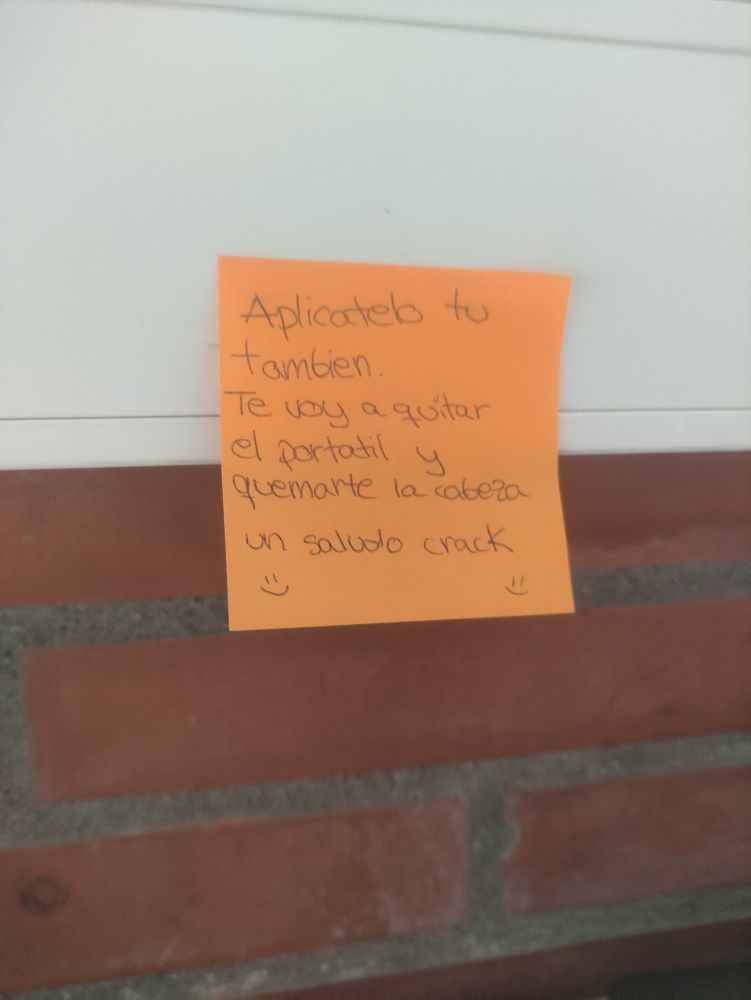 Aplicatelo tu
tambien.
Te voy a quitar
el portatil y
quemarte la cabeza
un saludo crack